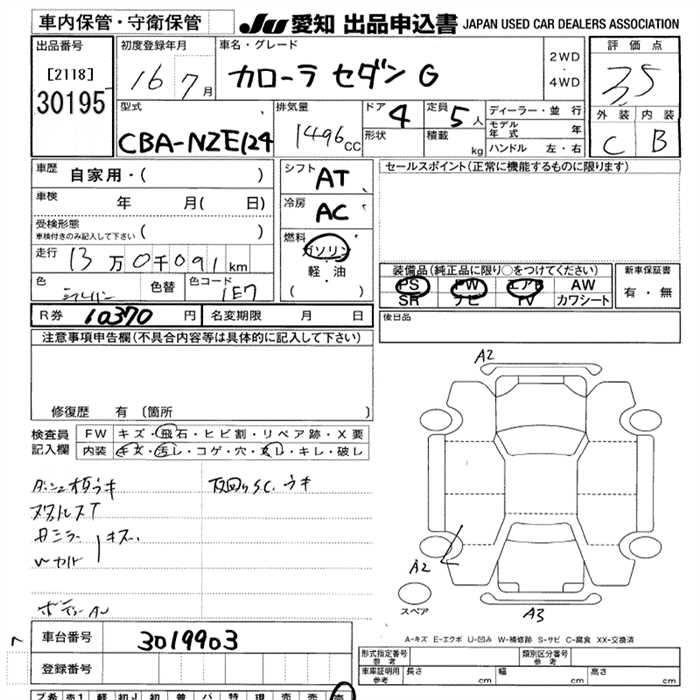 車内保管・守衛保管
JU 愛知 出品申込書 JAPAN USED CAR DEALERS ASSOCIATION
出品番号
[2118]
30195
初度登録年月
16 7月
車名・グレード
カローラ セダン G
2WD
・
4WD
評価点
3.5
外装 内装
C B
型式
CBA-NZE124
排気量
1496cc
ドア 4
形状
定員 5人
積載 kg
ディーラー・並行
モデル年式 年
ハンドル 左・右
車歴 自家用・( )
車検 年 月( 日)
受検形態
車検付きのみ記入して下さい ( )
走行 13万0千091km
色 シルバー
色替
色コード 1E7
シフト AT
冷房 AC
燃料
ガソリン
・
軽・油
( )
セールスポイント(正常に機能するものに限ります)
装備品(純正品に限り○をつけてください)
PS PW エアB AW
SR ナビ TV カワシート
新車保証書
有・無
後日品
R券 10370円
名変期限 月 日
注意事項申告欄(不具合内容等は具体的に記入して下さい)
修復歴 有 〔箇所 〕
検査員
記入欄
FW キズ・飛石・ヒビ割・リペア跡・X要
内装 キズ・汚レ・コゲ・穴・スレ・キレ・破レ
キズ
A2
A2
A3
スペア
A-キズ E-エクボ U-凹み W-補修跡 S-サビ C-腐食 XX-交換済
車台番号 3019903
登録番号
形式指定番号
参考
類別区分番号
参考
車庫証明用
参考
長さ cm
幅 cm
高さ cm